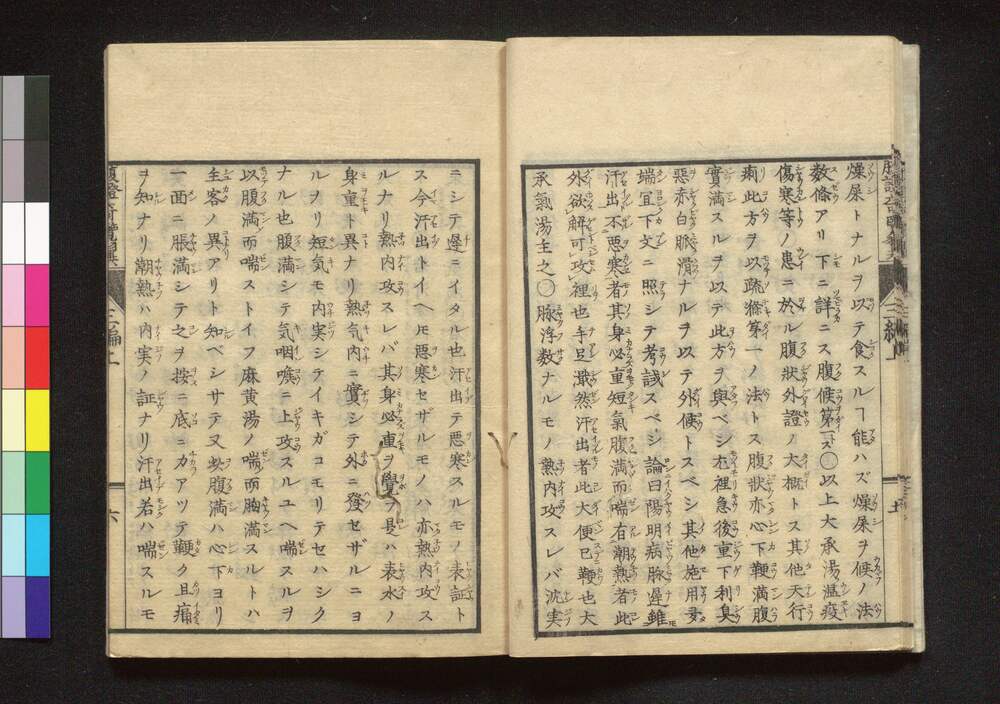 燥屎トナルヲ以テ食スルヿ能ハズ燥屎ヲ候ノ法
数條アリ下ニ詳ニス腹候第一ニ〇以上大承湯温疫
傷寒等ノ患ニ於ル腹状外證ノ大概トス其他天行
痢此方ヲ以疏滌第一ノ法トス腹状亦心下鞕満腹
實満スルヲ以テ此方ヲ與ベシ尤裡急後重下利臭
惡赤白脓滑ナルヲ以テ外候トスベシ其他施用
端宜下文ニ照シテ考試スベシ論曰陽明病脉遲雖
汗出不悪寒者其身必重短氣腹満而喘有潮熱者此
外欲解可攻裡也手足濈然汗出者此大便已鞕也大
承氣湯主之〇脉浮数ナルモノ熱内攻スレバ沈実
ニシテ遲ニイタル也汗出テ悪寒スルモノ表証ト
ス今汗出トイヘ𪜈悪寒セザルモノハ亦熱内攻ス
ルナリ熱内攻スレバ其身必重ヲ覺フ是ハ表水ノ
身重ト異ナリ熱气内ニ實シテ外ニ發セザルニヨ
ルヲリ短気モ内実シテイキガコモリテセハシク
ナル也腹満シテ気咽喉ニ上攻スルユヘ喘スルヲ
以腹満而喘ストイフ麻黄湯ノ喘而胸満スルトハ
主客ノ異アリト知ベシサテ又此腹満ハ心下ヨリ
一面ニ脹満シテ之ヲ按ニ底ニカアツテ鞕ク且痛
ヲ知ナリ潮熱ハ内実ノ証ナリ汗出若ハ喘スルモ
三編上
六